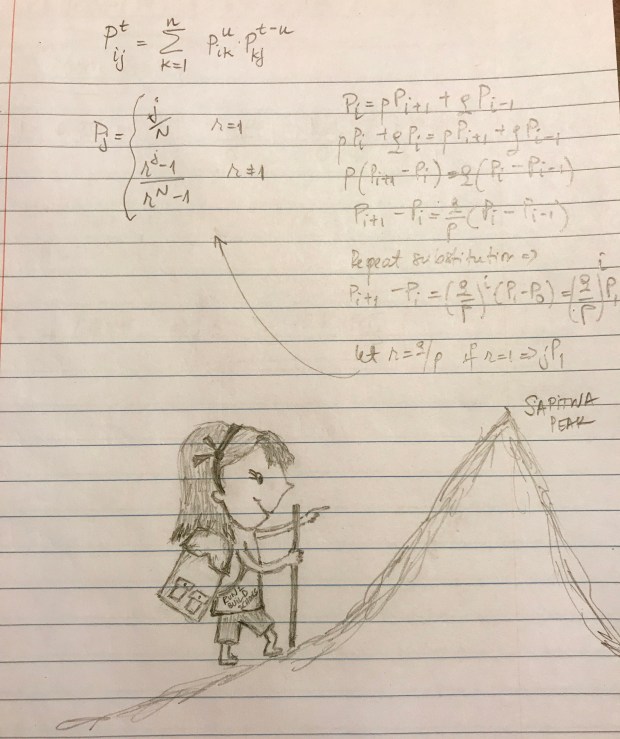 P_{ij}^t = \sum_{k=1}^{n} P_{ik}^u \cdot P_{kj}^{t-u}
P_j = { j/N   r=1
(r^j-1)/(r^N-1)   r≠1
P_i = pP_{i+1} + qP_{i-1}
pP_i + qP_i = pP_{i+1} + qP_{i-1}
p(P_{i+1} - P_i) = q(P_i - P_{i-1})
P_{i+1} - P_i = q/p (P_i - P_{i-1})
Repeat substitution ⇒
P_{i+1} - P_i = (q/p)^i (P_1 - P_0) = (q/p)^i P_1
let r = q/p if r=1 ⇒ jP_1
SAPITWA
PEAK
BUILD